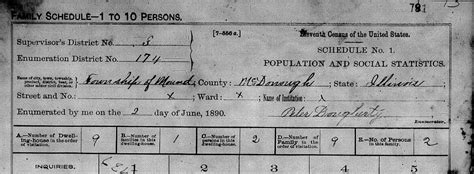 791
13
FAMILY SCHEDULE—1 TO 10 PERSONS.
[7-556 a.]
Eleventh Census of the United States.
Supervisor's District No. 3
Enumeration District No. 174
SCHEDULE No. 1.
POPULATION AND SOCIAL STATISTICS.
Name of city, town, township, precinct, district, beat, or other minor civil division. Township of Mound; County: McDonough; State: Illinois;
Street and No.: X; Ward: X; Name of Institution: X
Enumerated by me on the 2 day of June, 1890. Dougherty
Enumerator.
A.—Number of Dwelling-house in the order of visitation. 9 B.—Number of families in this dwelling-house. 1 C.—Number of persons in this dwelling-house. 2 D.—Number of Family in the order of visitation. 9 E.—No. of Persons in this family. 2
INQUIRIES. 1 2 3 4 5